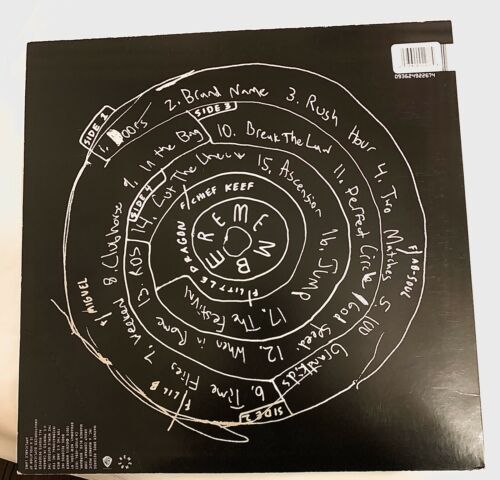 093624922674
SIDE 1
1. DOORS
2. Brand Name
3. Rush Hour
4. Two Matches
F/ AB-SOUL
5. 100 Grandkids
SIDE 2
6. Time Flies
F/ LIL B
7. Weekend
F/ MIGUEL
8. Clubhouse
9. In the Bag
SIDE 3
10. Break The Law
11. Perfect Circle / God Speed
12. When in Rome
13. ROS
SIDE 4
14. Cut The Check
F/ CHIEF KEEF
15. Ascension
16. JUMP
17. The Festival
F/ LITTLE DRAGON
REMEMBER